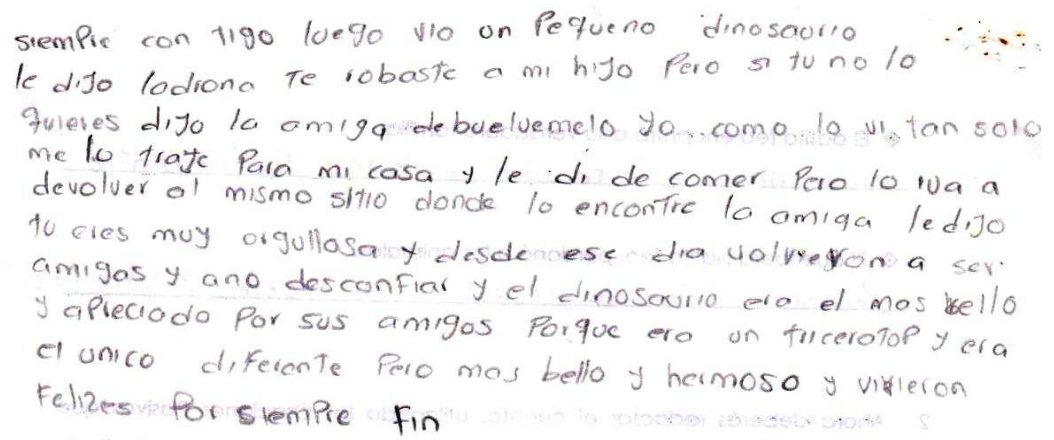 siempre con tigo luego vio un Pequeno dinosaurio
le dijo ladrona Te robaste a mi hijo Pero si tu no lo
quieres dijo la amiga debuelvemelo yo como lo vi tan solo
me lo traje Para mi casa y le di de comer Pero lo iva a
devolver al mismo sitio donde lo encontre la amiga le dijo
tu eres muy orgullosa y desde ese dia volvieron a ser
amigas y ano desconfiar y el dinosaurio era el mas bello
y apreciado Por sus amigos Porque era un triceratop y era
el unico diferente Pero mas bello y hermoso y vivieron
Felizes Por siempre fin